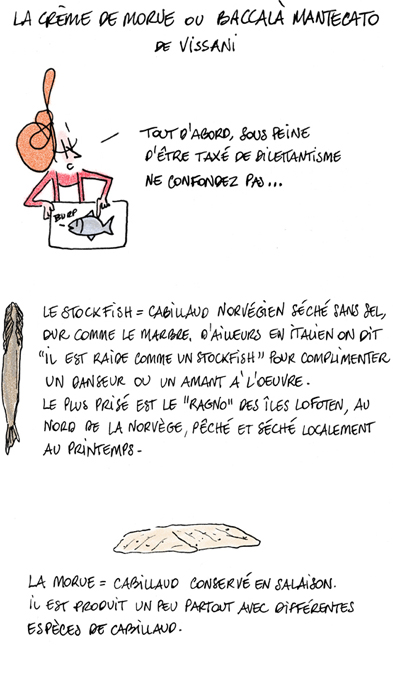 LA CRÈME DE MORUE OU BACCALÀ MANTECATO
DE VISSANI
TOUT D'ABORD, SOUS PEINE
D'ÊTRE TAXÉ DE DILETTANTISME
NE CONFONDEZ PAS...
BURP
LE STOCKFISH = CABILLAUD NORVÉGIEN SÉCHÉ SANS SEL,
DUR COMME LE MARBRE. D'AILLEURS EN ITALIEN ON DIT
"IL EST RAIDE COMME UN STOCKFISH" POUR COMPLIMENTER
UN DANSEUR OU UN AMANT À L'OEUVRE.
LE PLUS PRISÉ EST LE "RAGNO" DES ÎLES LOFOTEN, AU
NORD DE LA NORVÈGE, PÊCHÉ ET SÉCHÉ LOCALEMENT
AU PRINTEMPS -
LA MORUE = CABILLAUD CONSERVÉ EN SALAISON.
IL EST PRODUIT UN PEU PARTOUT AVEC DIFFÉRENTES
ESPÈCES DE CABILLAUD.